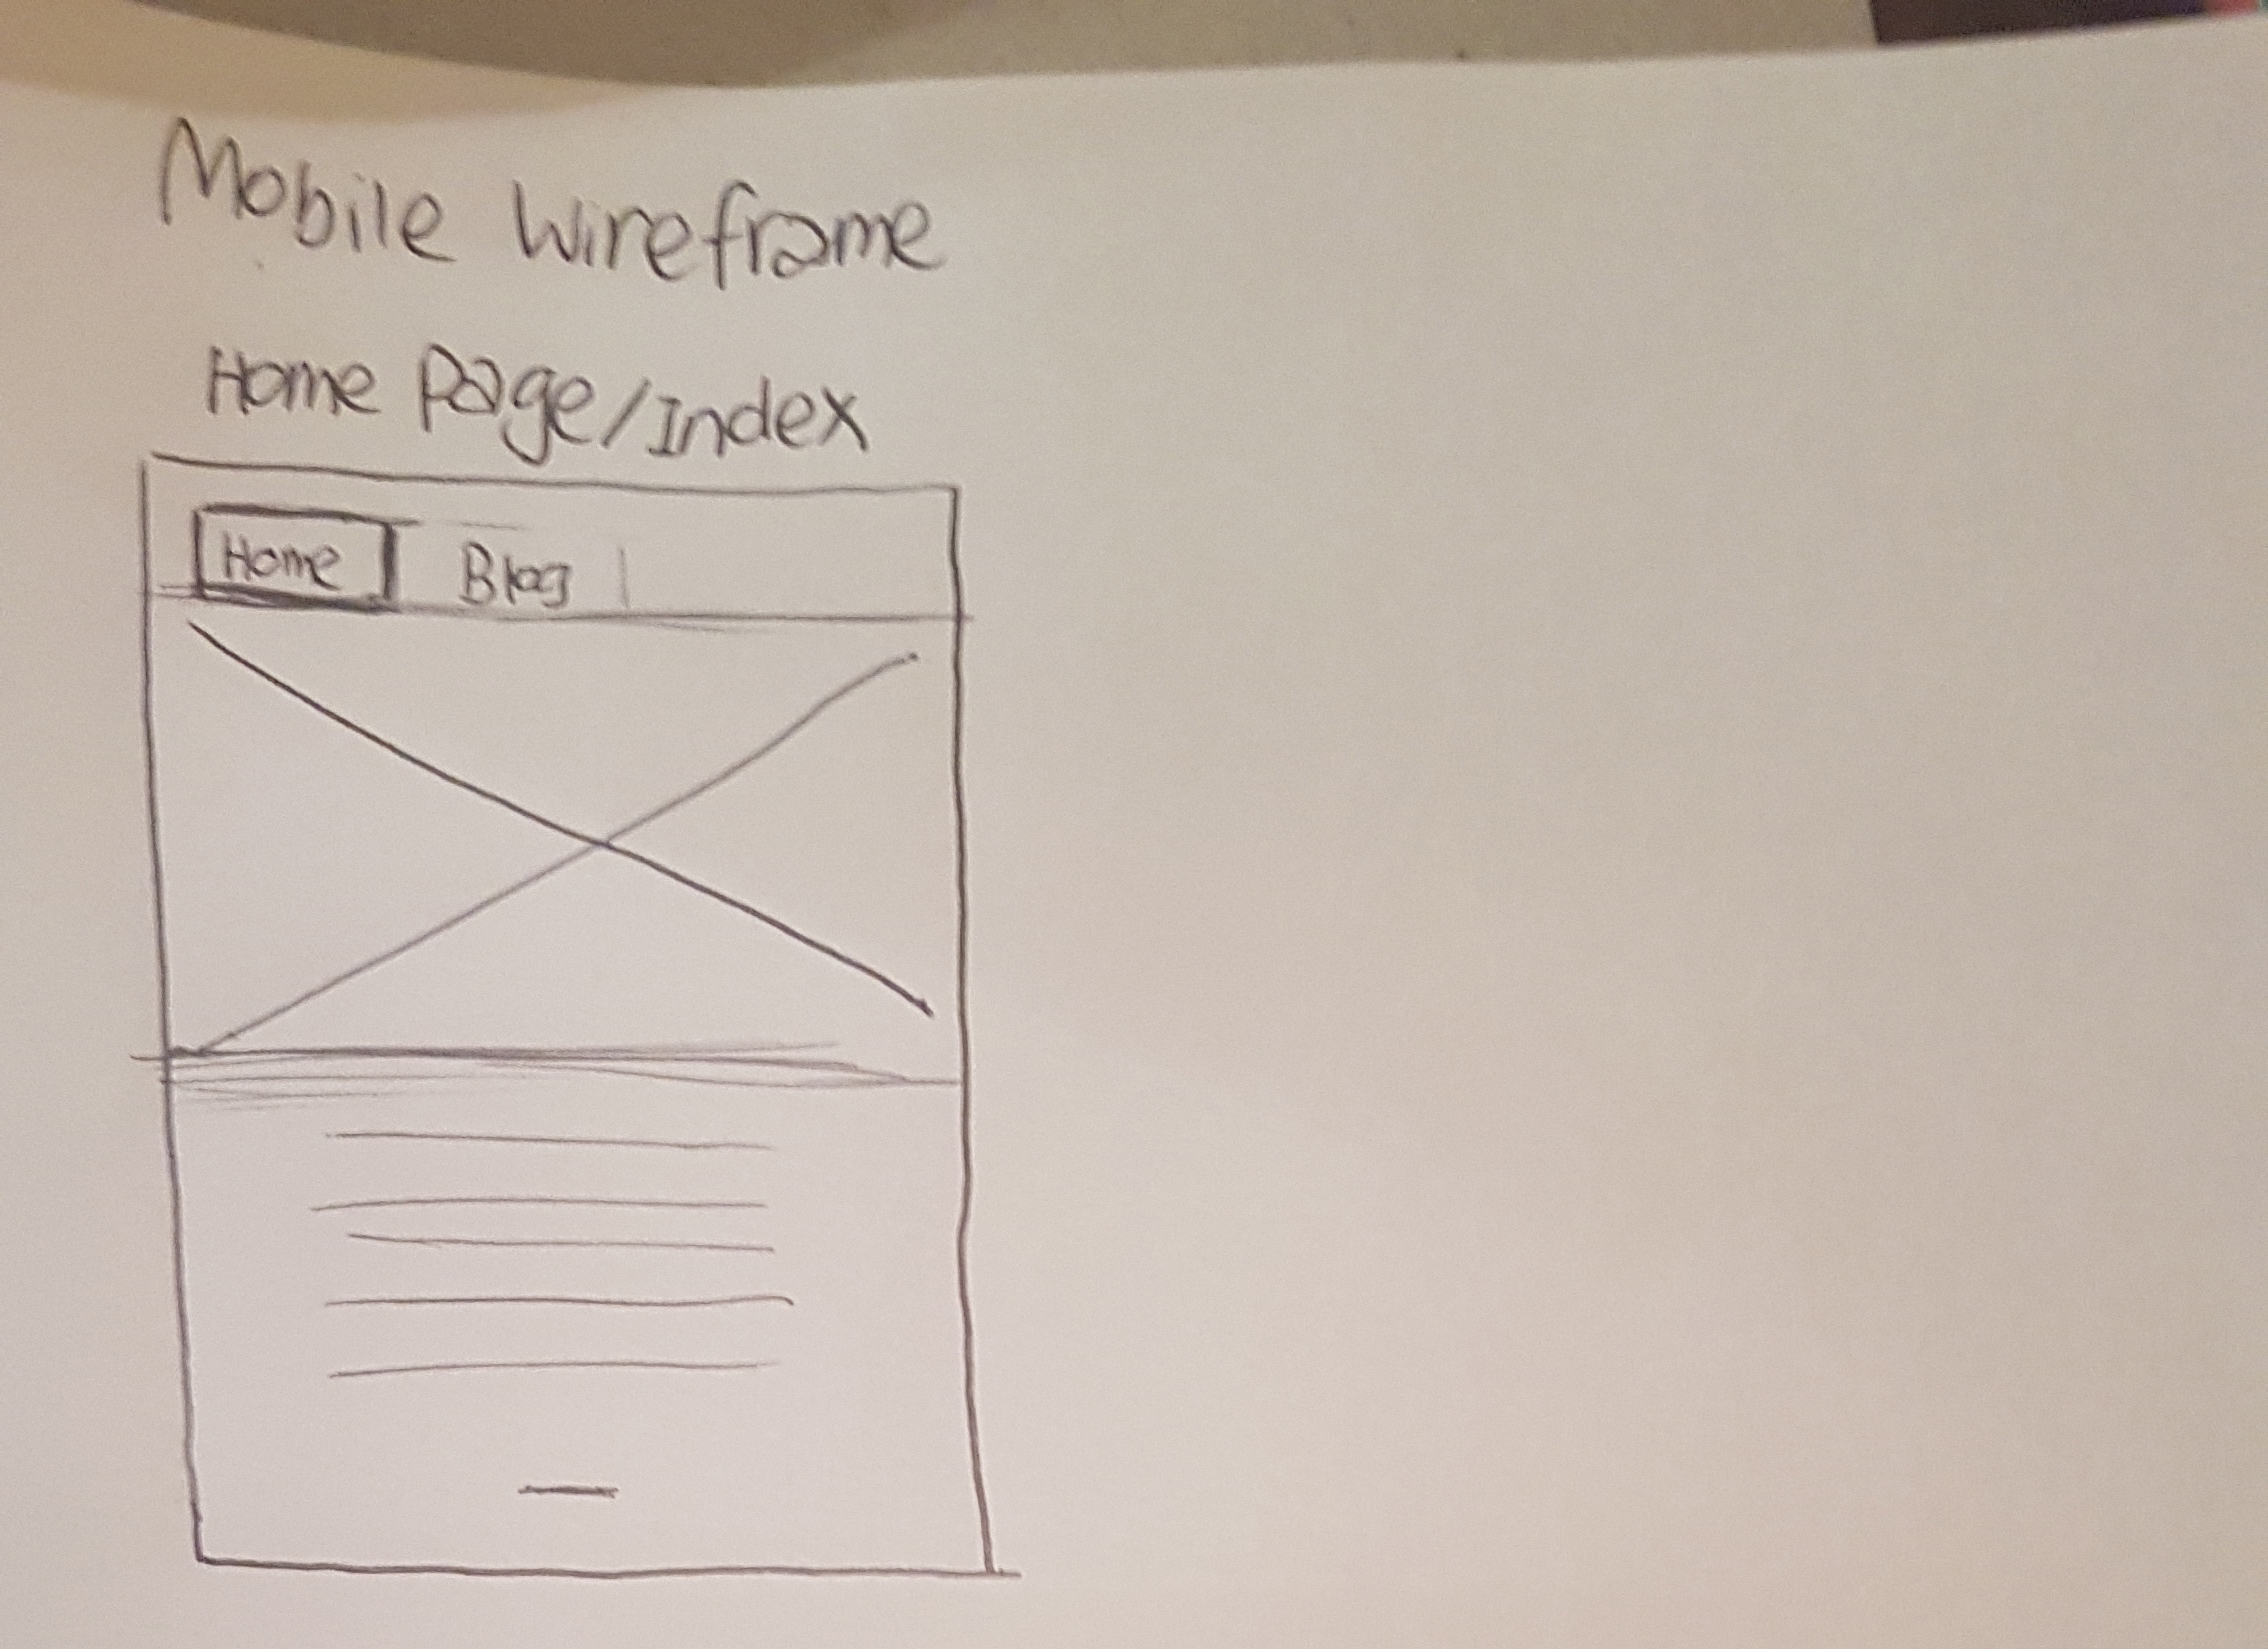 Mobile Wireframe
Home Page/Index
Home Blog